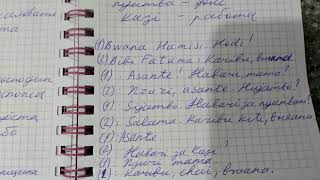 nyumba – дом
kazi – работа
(1) Bwana Hamisi: Hodi!
(2) Bibi Fatuma: Karibu, bwana
(1) Asante! Habari, mama?
(2) Nzuri, asante. Hujambo?
(1) Sijambo. Habari za nyumbani?
(2): Salama. Karibu kiti, bwana
(1) Asante.
(2) Habari za kazi?
(1) Nzuri mama.
(2) Karibu, chai, bwana.